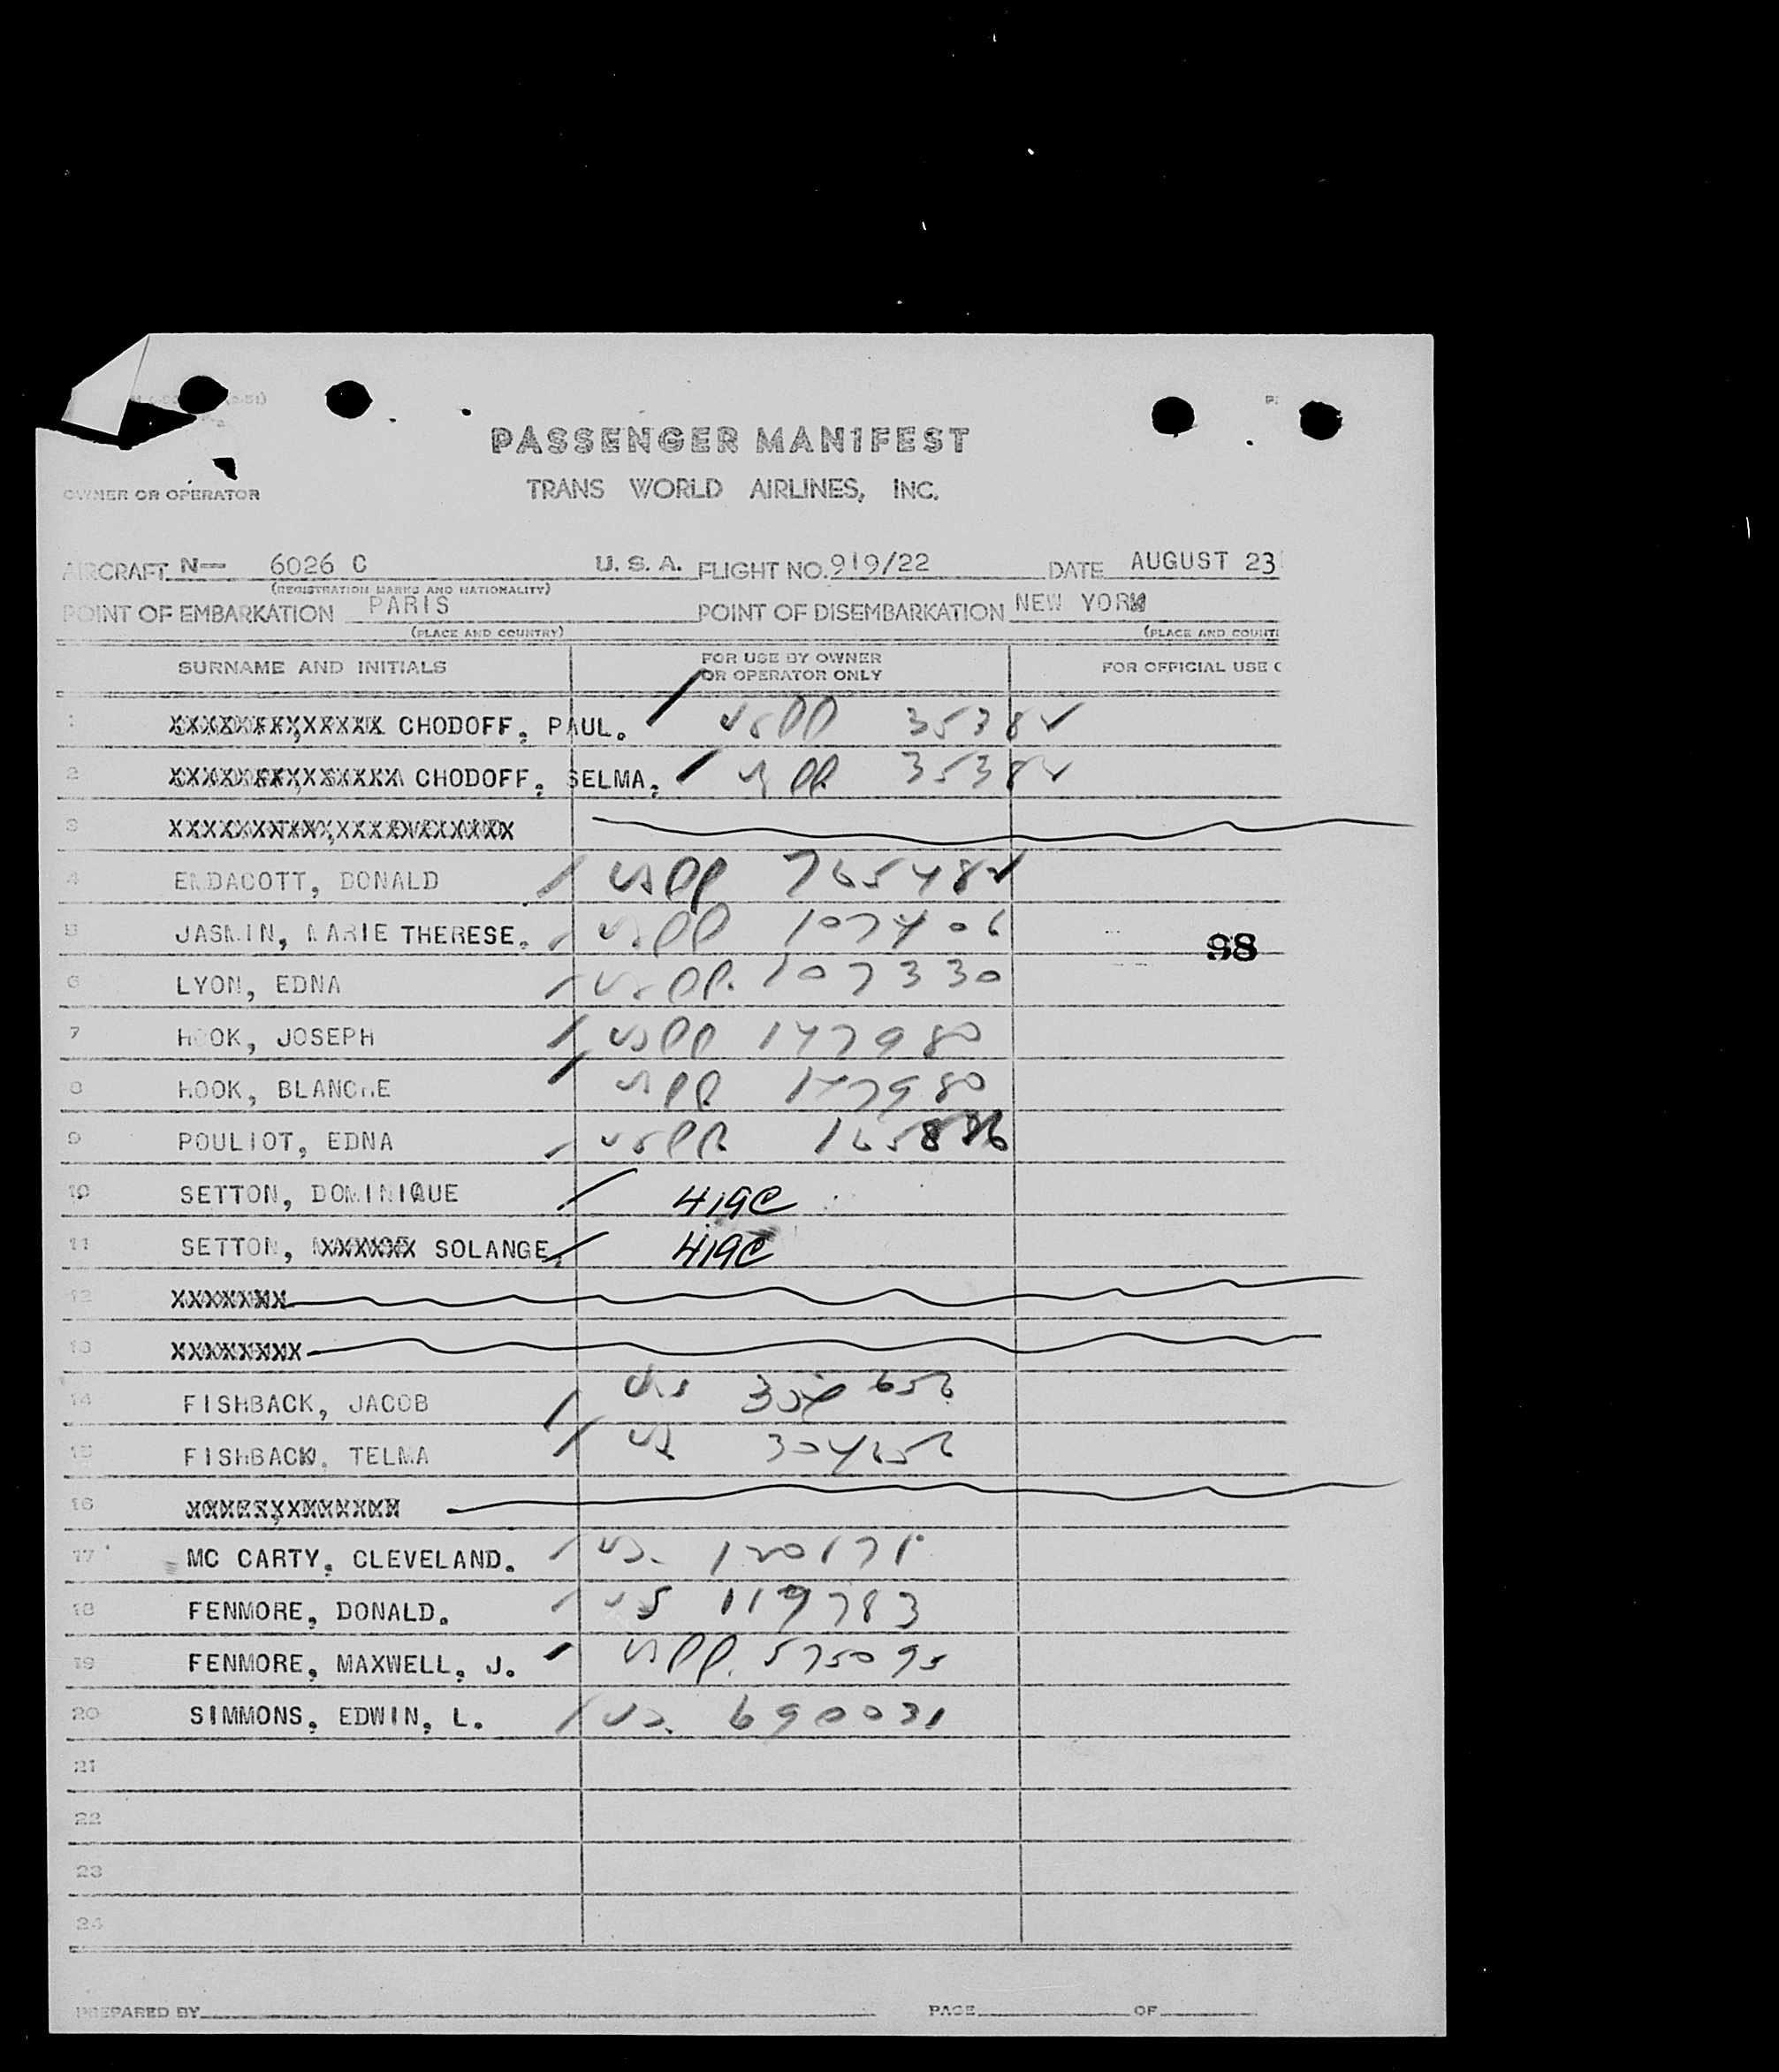 PASSENGER MANIFEST
OWNER OR OPERATOR TRANS WORLD AIRLINES, INC.
AIRCRAFT N— 6026 C U. S. A. FLIGHT NO. 919/22 DATE AUGUST 23
(REGISTRATION MARKS AND NATIONALITY)
POINT OF EMBARKATION PARIS POINT OF DISEMBARKATION NEW YORK
(PLACE AND COUNTRY) (PLACE AND COUNT
SURNAME AND INITIALS FOR USE BY OWNER OR OPERATOR ONLY FOR OFFICIAL USE
1 CHODOFF, PAUL. uspp 35382
2 CHODOFF, SELMA, uspp 35382
3
4 ENDACOTT, DONALD uspp 765482
5 JASMIN, MARIE THERESE. uspp 107406
98
6 LYON, EDNA uspp. 107330
7 HOOK, JOSEPH uspp 147980
8 HOOK, BLANCHE uspp 147980
9 POULIOT, EDNA uspp
10 SETTON, DOMINIQUE 419C
11 SETTON, XXXXXX SOLANGE. 419C
12 XXXXXXX
13 XXXXXXXX
14 FISHBACK, JACOB US
15 FISHBACK, TELMA US 304652
16
17 MC CARTY, CLEVELAND. US. 120171
18 FENMORE, DONALD. US 119783
19 FENMORE, MAXWELL, J. uspp. 575095
20 SIMMONS, EDWIN, L. US. 690031
21
22
23
24
PREPARED BY PAGE OF